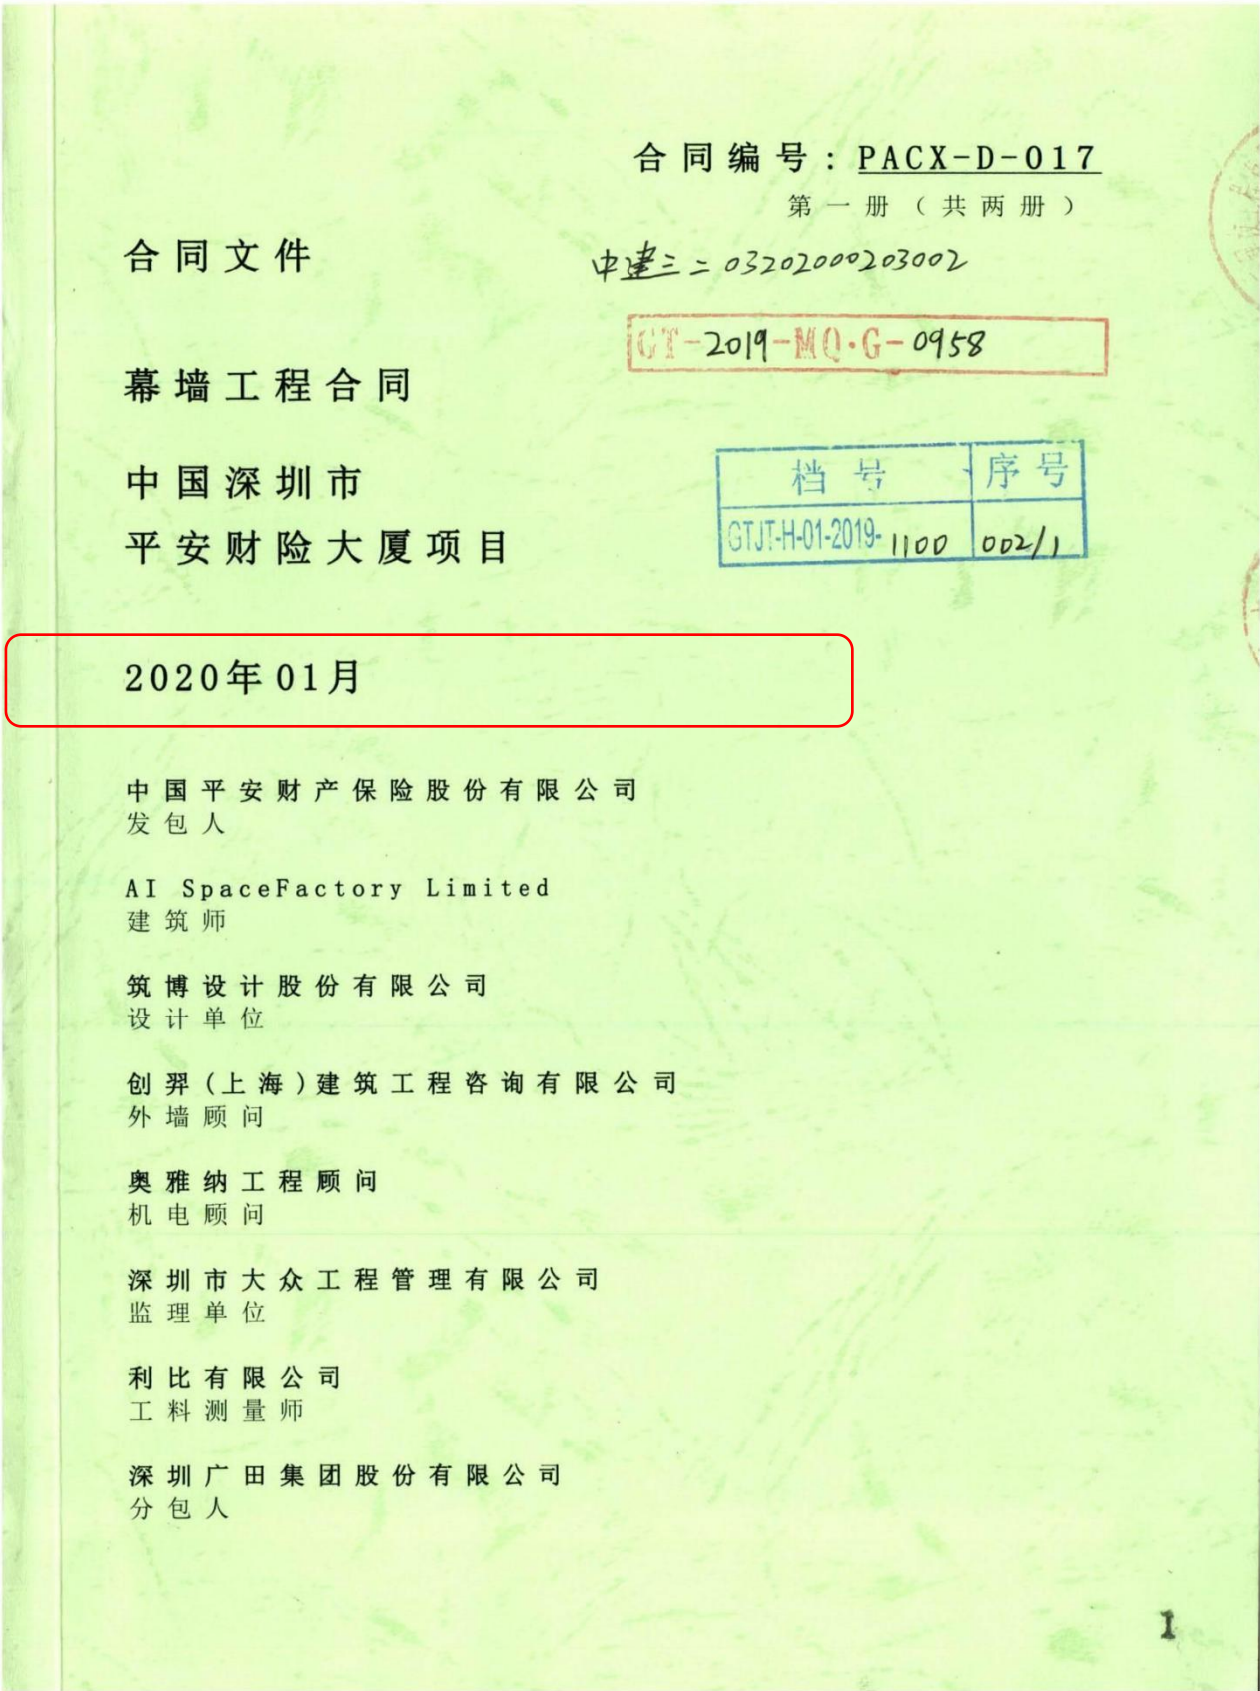 合同编号：PACX-D-017
第一册（共两册）
合同文件
中建三二03202000203002
GT-2019-MQ·G-0958
幕墙工程合同
中国深圳市
平安财险大厦项目
档号 序号
GTJT-H-01-2019-1100 002/1
2020年01月
中国平安财产保险股份有限公司
发包人
AI SpaceFactory Limited
建筑师
筑博设计股份有限公司
设计单位
创羿(上海)建筑工程咨询有限公司
外墙顾问
奥雅纳工程顾问
机电顾问
深圳市大众工程管理有限公司
监理单位
利比有限公司
工料测量师
深圳广田集团股份有限公司
分包人
1